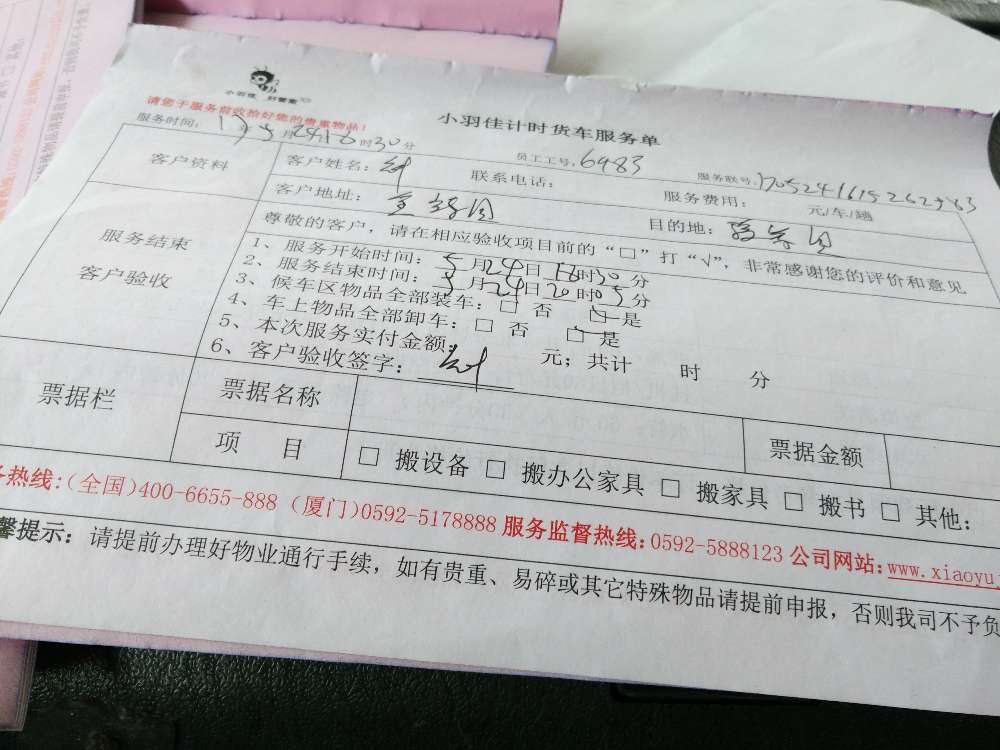 小羽佳 好管家
请您于服务前收拾好您的贵重物品！
小羽佳计时货车服务单
服务时间：17年5月24日16时30分 员工工号：6983 服务联号：1705241615262983
客户资料 客户姓名： 联系电话： 服务费用： 元/车/趟
客户地址： 目的地：
服务结束 客户验收
尊敬的客户，请在相应验收项目前的“□”打“√”，非常感谢您的评价和意见
1、服务开始时间：5月24日16时30分
2、服务结束时间：5月24日20时05分
3、候车区物品全部装车：□ 否 □ 是
4、车上物品全部卸车：□ 否 □ 是
5、本次服务实付金额： 元；共计 时 分
6、客户验收签字：
票据栏 票据名称 票据金额
项 目 □ 搬设备 □ 搬办公家具 □ 搬家具 □ 搬书 □ 其他：
热线：(全国)400-6655-888 (厦门)0592-5178888 服务监督热线：0592-5888123 公司网站：www.xiaoyuj
馨提示：请提前办理好物业通行手续，如有贵重、易碎或其它特殊物品请提前申报，否则我司不予负